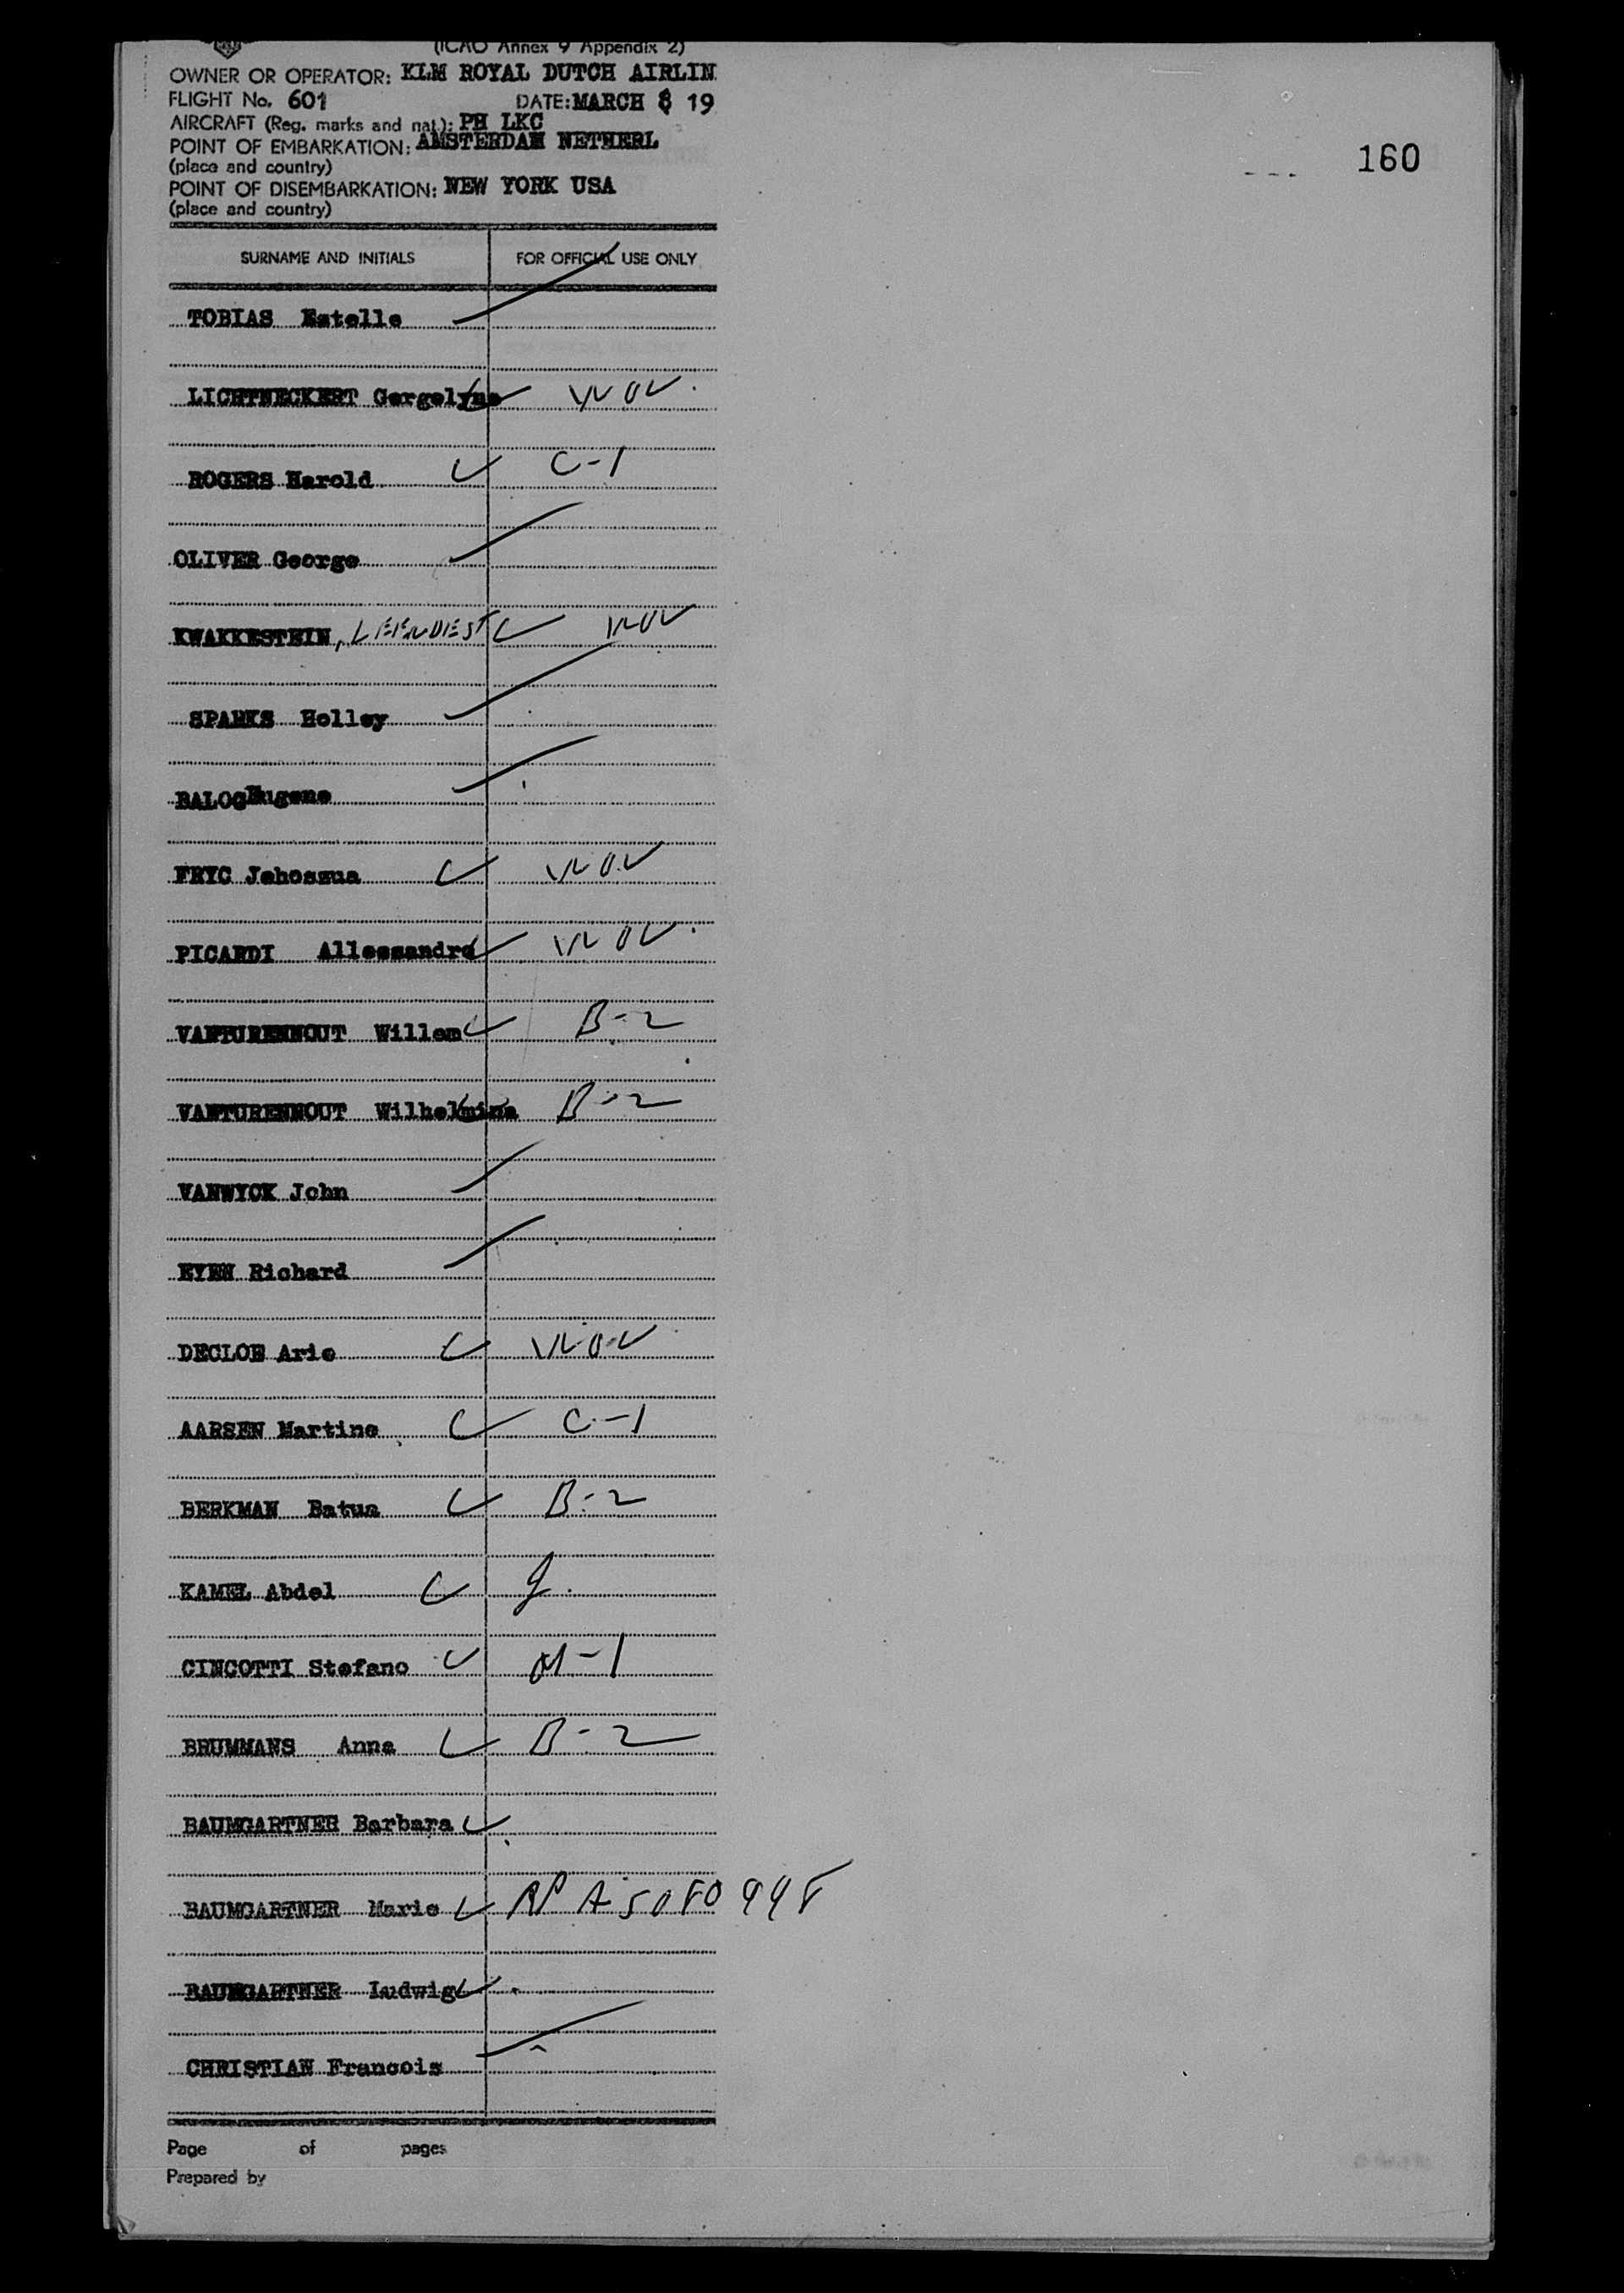 (ICAO Annex 9 Appendix 2)
OWNER OR OPERATOR: KLM ROYAL DUTCH AIRLIN
FLIGHT No. 601 DATE: MARCH 8 19
AIRCRAFT (Reg. marks and nat.): PH LKC
POINT OF EMBARKATION: AMSTERDAM NETHERL
(place and country)
160
POINT OF DISEMBARKATION: NEW YORK USA
(place and country)
SURNAME AND INITIALS FOR OFFICIAL USE ONLY
TOBIAS Estelle
LICHTNECKERT Gergelyne
ROGERS Harold C-1
OLIVER George
KWAKKESTEIN, LEENDEST
SPARKS Holley
BALOG Eugene
FRYC Jehoszua
PICARDI Allessandro
VANTURENHOUT Willem B-2
VANTURENHOUT Wilhelmina B-2
VANWYCK John
EYEN Richard
DECLOE Arie
AARSEN Martine C-1
BERKMAN Batua B-2
KAMEL Abdel
CINCOTTI Stefano M-1
BRUMMANS Anna B-2
BAUMGARTNER Barbara
BAUMGARTNER Marie RP A5080998
BAUMGARTNER Ludwig
CHRISTIAN Francois
Page of pages
Prepared by